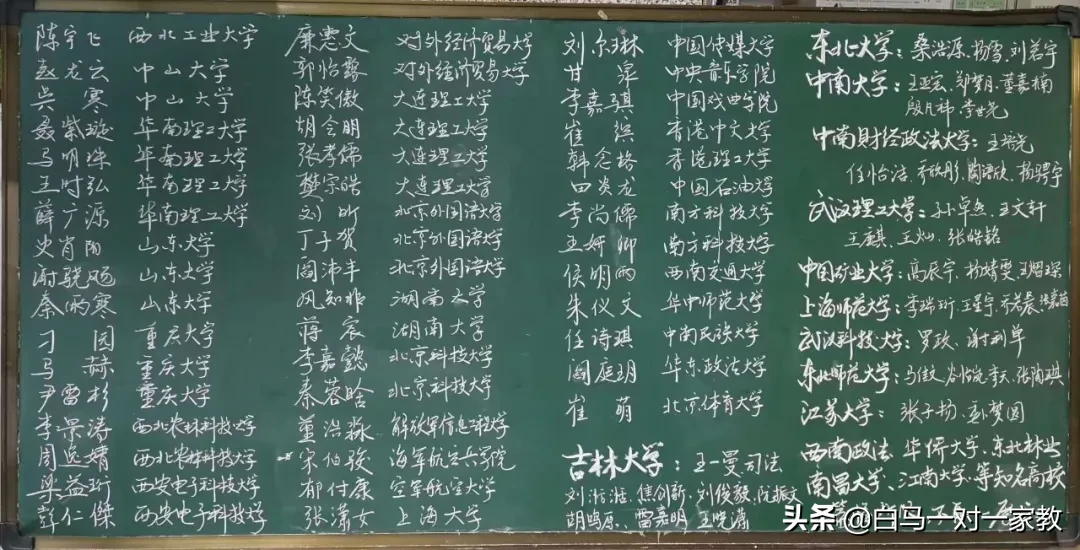 陈宇飞 西北工业大学
赵龙云 中山大学
吴寒 中山大学
聂紫璇 华南理工大学
马明琛 华南理工大学
王时弘 华南理工大学
薛广源 华南理工大学
史肖阳 山东大学
谢骁飏 山东大学
秦雨寒 山东大学
刁园 重庆大学
马赫 重庆大学
尹雷杉 重庆大学
李景涛 西北农林科技大学
周逸婧 西北农林科技大学
梁益珩 西安电子科技大学
彭仁傑 西安电子科技大学
廉惠文 对外经济贸易大学
郭怡霖 对外经济贸易大学
陈笑傲 大连理工大学
胡令明 大连理工大学
张孝儒 大连理工大学
樊宗皓 大连理工大学
刘昕 北京外国语大学
丁子贺 北京外国语大学
阎沛丰 北京外国语大学
湖南大学
蒋宸 湖南大学
李嘉懿 北京科技大学
秦蓉晗 北京科技大学
董浩淼 解放军信息工程大学
宋伯骏 海军航空兵学院
郁付康 空军航空大学
张潇女 上海大学
刘尔琳 中国传媒大学
甘霖 中央音乐学院
李嘉骐 中国戏曲学院
崔缤 香港中文大学
韩念格 香港理工大学
四炎龙 中国石油大学
李尚儒 南方科技大学
王妍卿 南方科技大学
侯明雨 西南交通大学
朱仪文 华中师范大学
任诗琪 中南民族大学
阎庭玥 华东政法大学
崔萌 北京体育大学
吉林大学：王一曼 司法
焦创新、刘俊毅、阮振文
胡鸣原、雷嘉明、王晓潇
东北大学：桑浩源、杨雪、刘若宇
中南大学：王亚宏、郑梦月、董嘉楠
殷凡祎、李世光
中南财经政法大学：王培光
任怡洁、
武汉理工大学：孙卓然、王文轩
王庭琪、王灿、张皓铭
中国矿业大学：高辰宇、杨婧雯、
上海师范大学：李瑞珩、王星宇、
武汉科技大学：罗政、谢利单
东北师范大学：马傲、张陶琪
江苏大学：张子扬、孟梦圆
西南政法、华侨大学、东北林业
南昌大学、江南大学、等知名高校
头条 @白鸟一对一家教